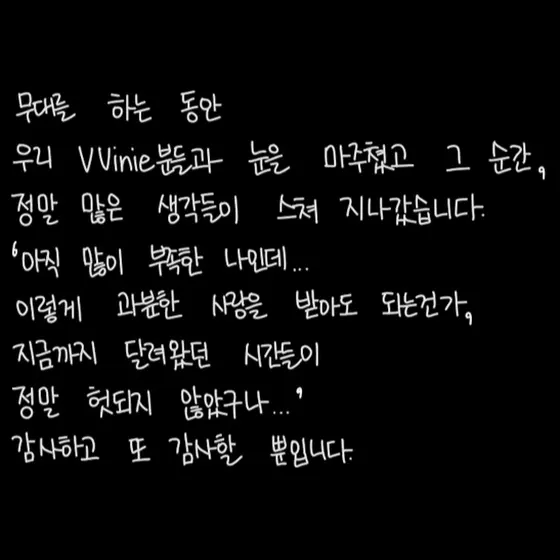 무대를 하는 동안
우리 VVinie분들과 눈을 마주쳤고 그 순간,
정말 많은 생각들이 스쳐 지나갔습니다.
'아직 많이 부족한 나인데...
이렇게 과분한 사랑을 받아도 되는건가,
지금까지 달려왔던 시간들이
정말 헛되지 않았구나...'
감사하고 또 감사할 뿐입니다.